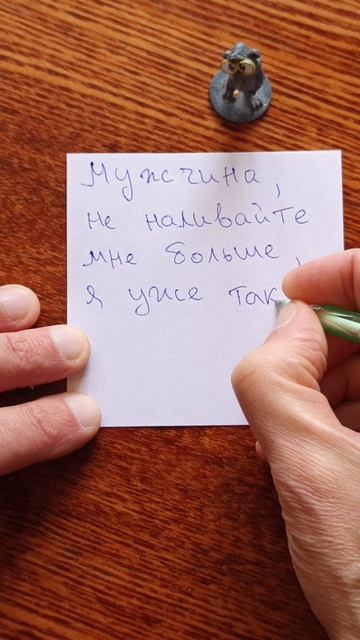 Мужчина,
не наливайте
мне больше,
я уже так